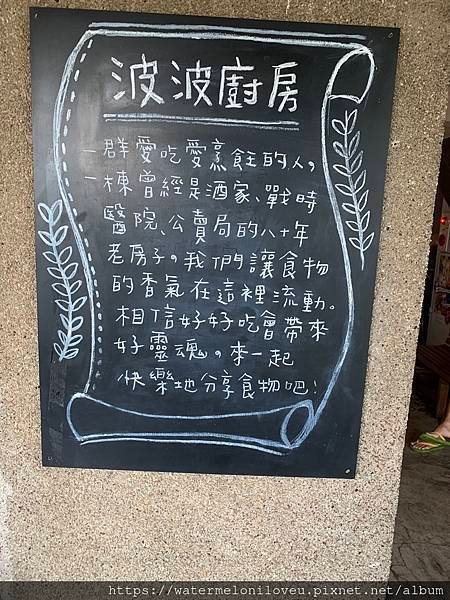 波波廚房
一群愛吃愛烹飪的人，
一棟曾經是酒家、戰時
醫院、公賣局的八十年
老房子。我們讓食物
的香氣在這裡流動。
相信好好吃會帶來
好靈魂。來一起
快樂地分享食物吧！
https://watermeloniloveu.pixnet.net/album